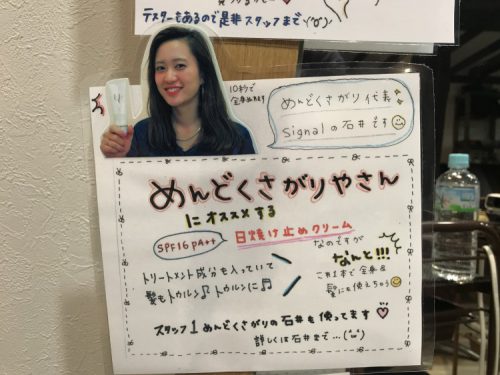 テスターもあるので是非スタッフまで
10秒で
全身ぬれる
めんどくさがり代表
signalの石井です
めんどくさがりやさん
にオススメする
SPF16 PA++
日焼け止めクリーム
なのですが
なんと!!!
トリートメント成分も入っていて
髪もトゥルン♪トゥルンに♬
これ1本で全身&
髪にも使えちゃう
スタッフ1めんどくさがりの石井も使ってます♡
詳しくは石井まで…